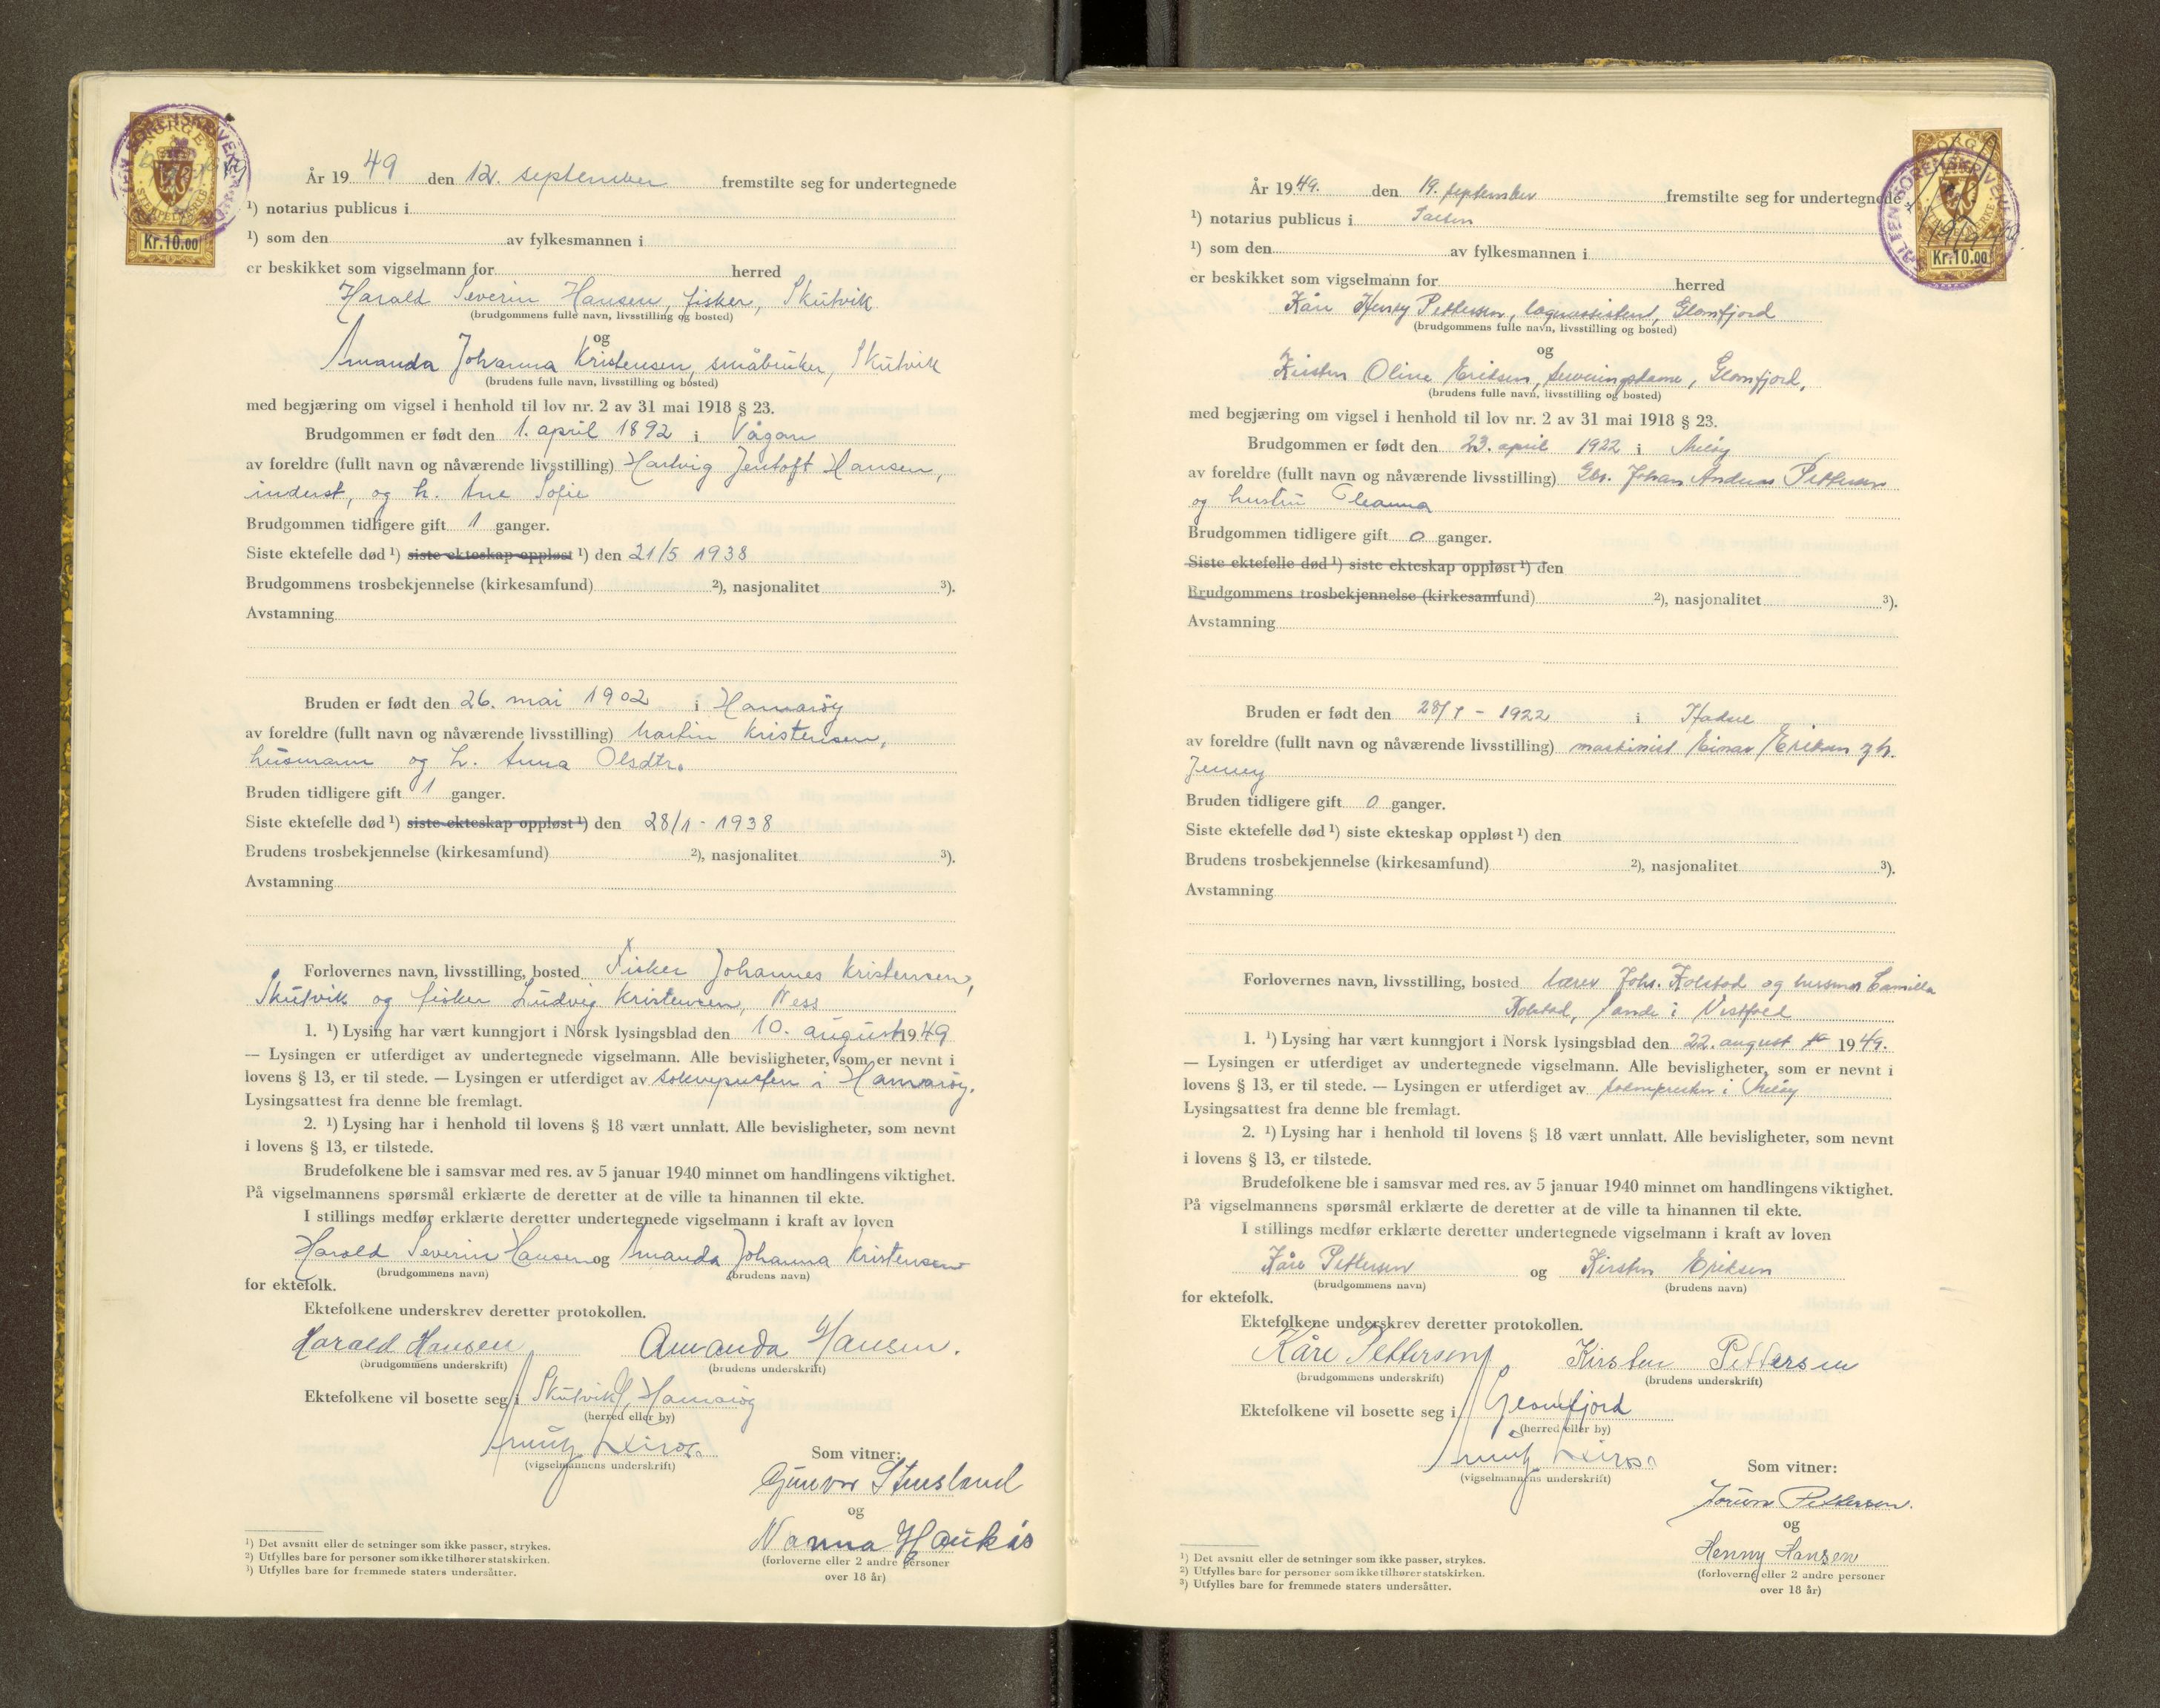 SALTEN SORENSKRIVEREMBEDE
NORGE
STEMPELMERKE
Kr.10.00
År 1949 den 12. september fremstilte seg for undertegnede
1) notarius publicus i
1) som den av fylkesmannen i
er beskikket som vigselmann for herred
Harald Severin Hansen, fisker, Skutvik
(brudgommens fulle navn, livsstilling og bosted)
og
Amanda Johanna Kristensen, småbruker, Skutvik
(brudens fulle navn, livsstilling og bosted)
med begjæring om vigsel i henhold til lov nr. 2 av 31 mai 1918 § 23.
Brudgommen er født den 1. april 1892 i Vågan
av foreldre (fullt navn og nåværende livsstilling) Hartvig Jentoft Hansen,
inderst, og h. Ane Sofie
Brudgommen tidligere gift 1 ganger.
Siste ektefelle død 1) siste ekteskap oppløst 1) den 21/5 1938
Brudgommens trosbekjennelse (kirkesamfund) 2), nasjonalitet 3).
Avstamning
Bruden er født den 26. mai 1902 i Hamarøy
av foreldre (fullt navn og nåværende livsstilling) Martin Kristensen,
husmann og h. Anna Olsdtr.
Bruden tidligere gift 1 ganger.
Siste ektefelle død 1) siste ekteskap oppløst 1) den 28/1 - 1938
Brudens trosbekjennelse (kirkesamfund) 2), nasjonalitet 3).
Avstamning
Forlovernes navn, livsstilling, bosted Fisker Johannes Kristensen,
Skutvik og fisker Ludvig Kristensen, Ness
1. 1) Lysing har vært kunngjort i Norsk lysingsblad den 10. august 1949
— Lysingen er utferdiget av undertegnede vigselmann. Alle bevisligheter, som er nevnt i
lovens § 13, er til stede. — Lysingen er utferdiget av soknepresten i Hamarøy.
Lysingsattest fra denne ble fremlagt.
2. 1) Lysing har i henhold til lovens § 18 vært unnlatt. Alle bevisligheter, som nevnt
i lovens § 13, er tilstede.
Brudefolkene ble i samsvar med res. av 5 januar 1940 minnet om handlingens viktighet.
På vigselmannens spørsmål erklærte de deretter at de ville ta hinannen til ekte.
I stillings medfør erklærte deretter undertegnede vigselmann i kraft av loven
Harald Severin Hansen og Amanda Johanna Kristensen
(brudgommens navn) (brudens navn)
for ektefolk.
Ektefolkene underskrev deretter protokollen.
Harald Hansen Amanda Hansen.
(brudgommens underskrift) (brudens underskrift)
Ektefolkene vil bosette seg i Skutvik, Hamarøy
(herred eller by)
(vigselmannens underskrift)
Som vitner:
Gunvor Stensland
og
Nanna Haukås
(forloverne eller 2 andre personer
over 18 år)
1) Det avsnitt eller de setninger som ikke passer, strykes.
2) Utfylles bare for personer som ikke tilhører statskirken.
3) Utfylles bare for fremmede staters undersåtter.
SALTEN SORENSKRIVEREMBEDE
NORGE
STEMPELMERKE
19/9 49
Kr.10.00
År 1949. den 19. september fremstilte seg for undertegnede
1) notarius publicus i Salten
1) som den av fylkesmannen i
er beskikket som vigselmann for herred
Kåre Henry Pettersen, lagerassistent, Glomfjord
(brudgommens fulle navn, livsstilling og bosted)
og
Kirsten Oline Eriksen, serveringsdame, Glomfjord,
(brudens fulle navn, livsstilling og bosted)
med begjæring om vigsel i henhold til lov nr. 2 av 31 mai 1918 § 23.
Brudgommen er født den 23. april 1922 i Meløy
av foreldre (fullt navn og nåværende livsstilling) Gbr. Johan Andreas Pettersen
og hustru Eleanna
Brudgommen tidligere gift 0 ganger.
Siste ektefelle død 1) siste ekteskap oppløst 1) den
Brudgommens trosbekjennelse (kirkesamfund) 2), nasjonalitet 3).
Avstamning
Bruden er født den 28/ - 1922 i
av foreldre (fullt navn og nåværende livsstilling) maskinist Einar Eriksen og h.
Jenny
Bruden tidligere gift 0 ganger.
Siste ektefelle død 1) siste ekteskap oppløst 1) den
Brudens trosbekjennelse (kirkesamfund) 2), nasjonalitet 3).
Avstamning
Forlovernes navn, livsstilling, bosted lærer Johs. Kolstad og husmor Camilla
Kolstad, Sande i Vestfold
1. 1) Lysing har vært kunngjort i Norsk lysingsblad den 22. august 1949.
— Lysingen er utferdiget av undertegnede vigselmann. Alle bevisligheter, som er nevnt i
lovens § 13, er til stede. — Lysingen er utferdiget av soknepresten i Meløy
Lysingsattest fra denne ble fremlagt.
2. 1) Lysing har i henhold til lovens § 18 vært unnlatt. Alle bevisligheter, som nevnt
i lovens § 13, er tilstede.
Brudefolkene ble i samsvar med res. av 5 januar 1940 minnet om handlingens viktighet.
På vigselmannens spørsmål erklærte de deretter at de ville ta hinannen til ekte.
I stillings medfør erklærte deretter undertegnede vigselmann i kraft av loven
Kåre Pettersen og Kirsten Eriksen
(brudgommens navn) (brudens navn)
for ektefolk.
Ektefolkene underskrev deretter protokollen.
Kåre Pettersen Kirsten Pettersen
(brudgommens underskrift) (brudens underskrift)
Ektefolkene vil bosette seg i Glomfjord
(herred eller by)
(vigselmannens underskrift)
Som vitner:
Jorunn Pettersen.
og
Henny Hansen
(forloverne eller 2 andre personer
over 18 år)
1) Det avsnitt eller de setninger som ikke passer, strykes.
2) Utfylles bare for personer som ikke tilhører statskirken.
3) Utfylles bare for fremmede staters undersåtter.